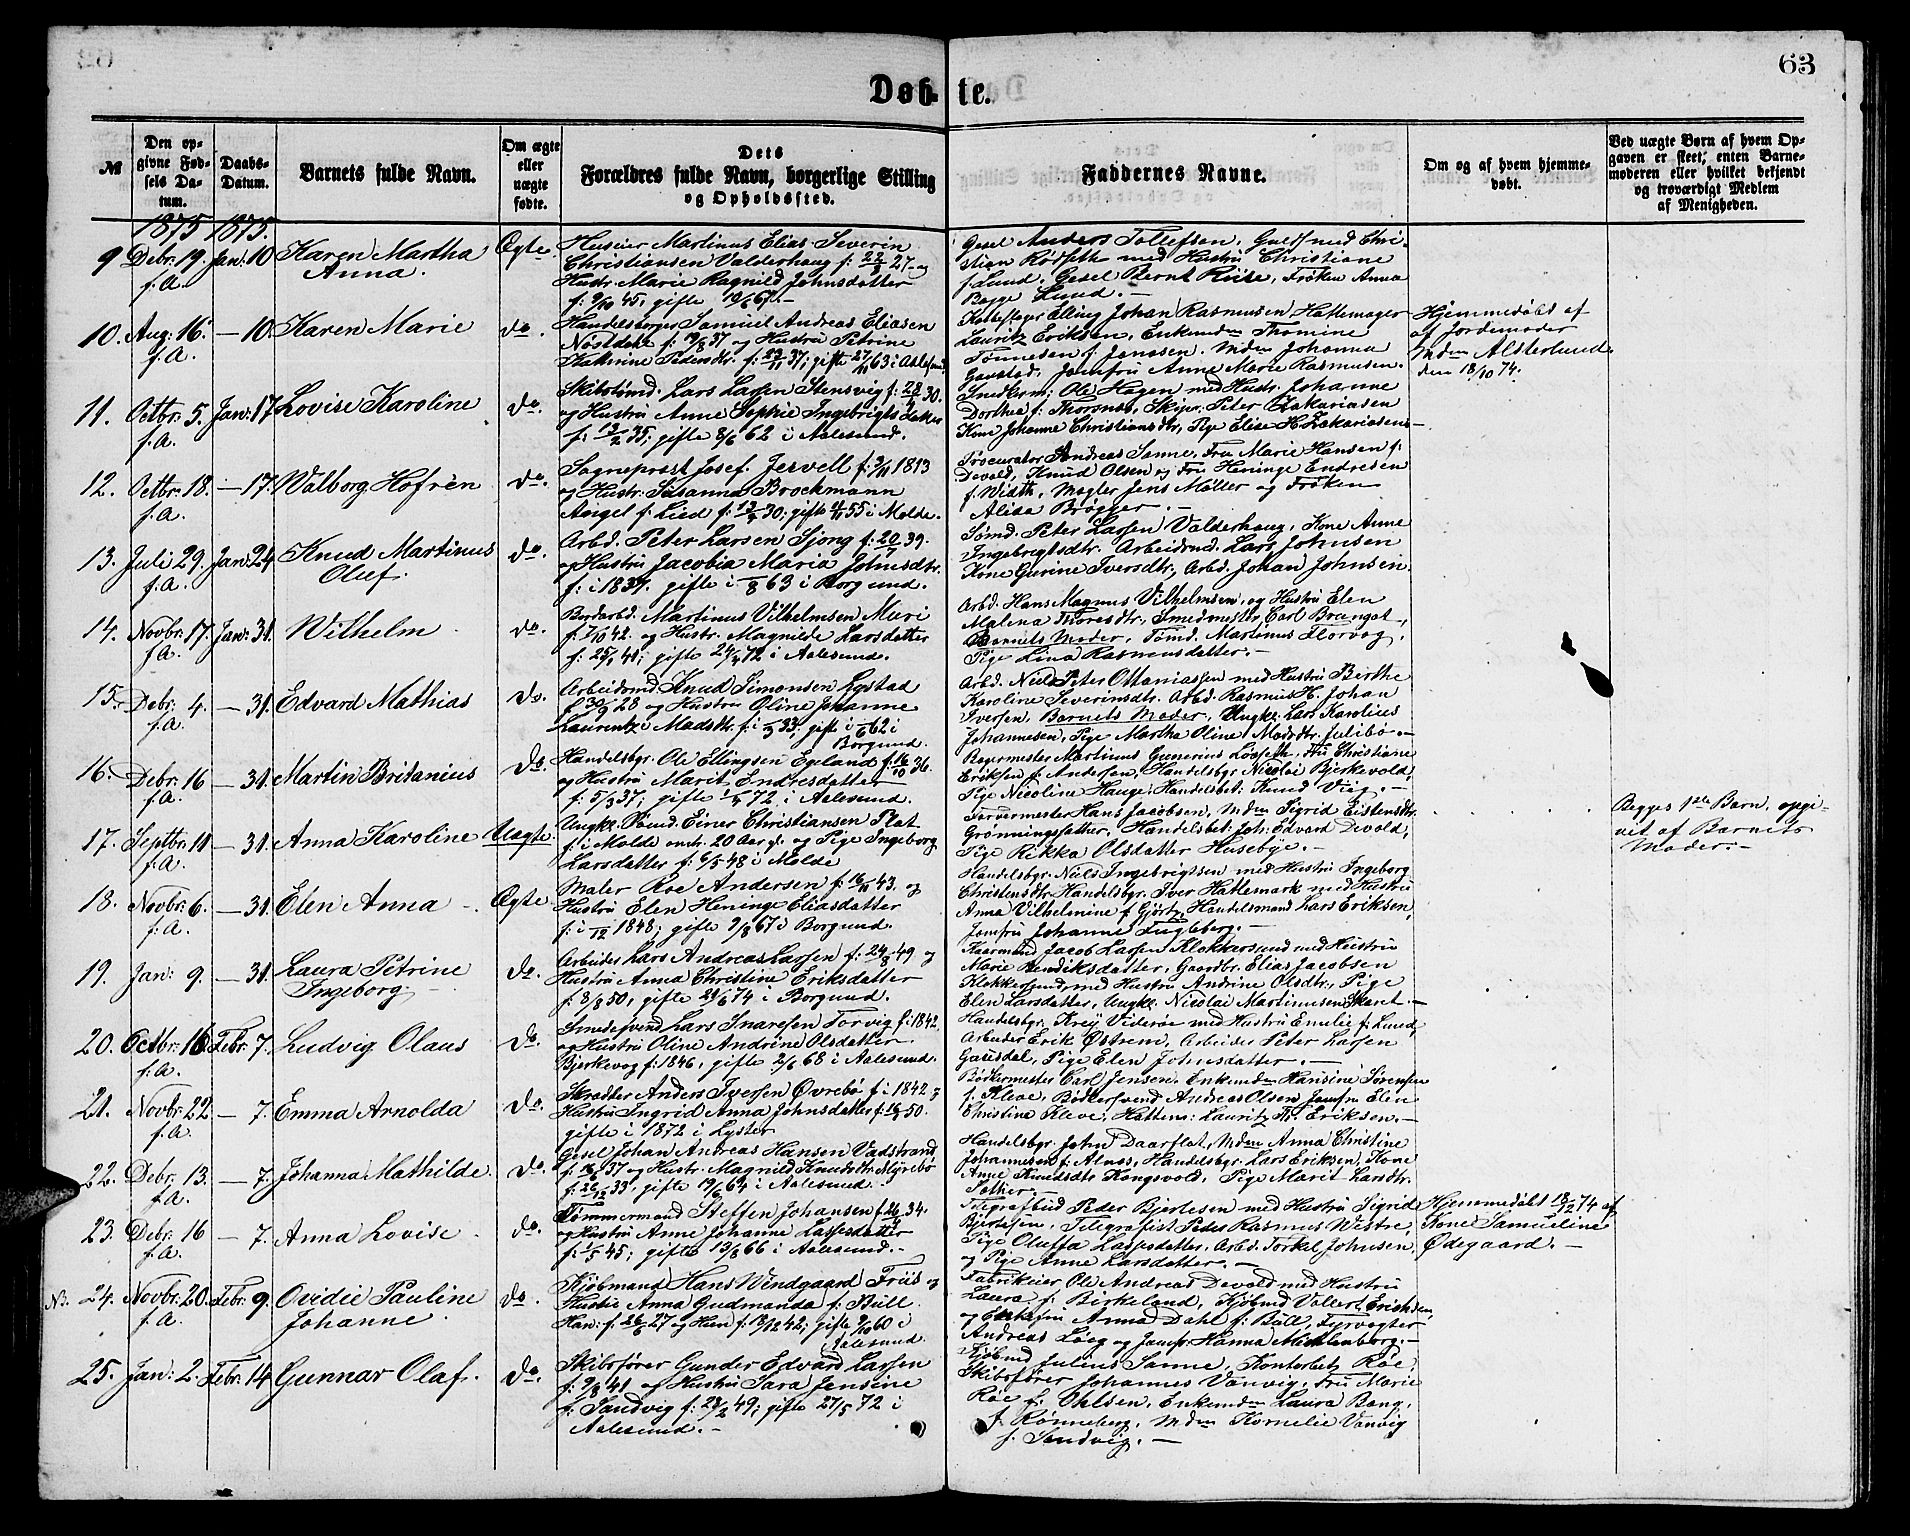 63
Døbte.
№
Den opgivne Fødsels Datum.
Daabs-Datum.
Barnets fulde Navn.
Om ægte eller uægte fødte.
Dets Forældres fulde Navn, borgerlige Stilling og Opholdssted.
Faddernes Navne.
Om og af hvem hjemmedøbt.
Ved uægte Børn af hvem Opgaven er skeet, enten Barnemoderen eller hvilket bekjendt og troværdigt Medlem af Menigheden.
1875 1875.
9 Debr: 19. f.A. Jan: 10 Karen Martha Anna. Ægte
Huseier Martinus Elias Severin
Christiansen Valderhaug f: 22/8 27 og
Hustr. Marie Ragnild Johnsdatter
f: 9/10 45, gifte 19/6 67.-
Gesel Anders Tollefsen, Guldsmed Chri-
stian Rødseth med Hustru Christiane
f. Lund, Gesel Bernt Riise, Frøken Anna
Bagge Lund.-
10. Aug: 16. f.A. — 10. Karen Marie do.
Handelsborger Samuel Andreas Eliasen
Nøstdahl f: 19/8 37 og Hustru Petrine
Kathrine Pedersdtr. f: 23/11 37; gifte 27/11 63 i Aalesund.
Elling Johan Rasmusen Hattemager
Lauritz Eriksen, Enkemdm Thomine
Tønnesen f. Jenssen. Mdm Johanna
Gavstad, Jomfru Anne Marie Rasmusen.
Hjemmedøbt af
af Jordemoder
Mdm Alsterlund
den 18/10 74.
11. Octbr: 5. f.A. Jan: 17 Lovise Karoline do.
Skibstømd. Lars Larsen Stensvig f: 28/4 30.
og Hustru Anne Sophie Ingebrigtsdatter
f: 13/2 35; gifte 8/6 62 i Aalesund.
Snedkerm; Ole Hagen med Hustr. Johanne
Dorthea f: Thorsnes, Skipr. Peter Zakariasen
Kone Johanne Christiansdtr, Pge Elise H. Zakariasens-
12. Octbr: 18. f.A. — 17. Walborg Hofrèn do.
Sogneprost Josef Jervell f: 9/11 1813
og Hustr: Susanna Brockmann
Angel f: Lied f: 13/4 30; gifte 4/11 55 i Molde.
Procurator Andreas Sanne, Fru Marie Hansen f:
Devold, Knud Olsen og Fru Heninge Endresen
f. Width, Mægler Jens Møller og Frøken
Alida Brøgger.-
13. Juli 29. f.A. Jan: 24 Knud Martinus Oluf. do.
Arbd. Peter Larsen Sjong f: 20/7 39.
og Hustru Jacobia Maria Johnsdtr.
f: i 1837. gifte i -/8 63 i Borgund.
Sømd. Peter Larsen Valderhaug, Kone Anne
Ingebrigtsdtr. Arbeidsmd. Lars Johnsen
Kone Gurine Iversdtr, Arbd. Johan Johnsen.
14. Novbr: 17. f.A. Jan: 31. Wilhelm do.
Bordarbd. Martinus Vilhelmsen Muri
f: 7/10 42. og Hustr. Magnilde Larsdatter
f: 25/1 41; gifte 24/4 72 i Aalesund.
Arbd. Hans Magnus Vilhelmsen, og Hustru Elen
Malena Thoresdtr, Smedmestr. Carl Brungot,
Barnets Moder, Tømd. Martinus Florvog,
Pige Lina Rasmusdatter.-
15. Debr: 4. f.A. — 31. Edvard Mathias do.
Arbeidsmd Knud Simonsen Lystad
f: 30/9 28 og Hustru Oline Johanne
Laurentze Madsdtr. f: i -/3 33, gift i -/6 62 i
Borgund.
Arbd. Niels Peter Ottaniassen med Hustru Birthe
Karoline Severinsdtr. Arbd. Rasmus H. Johan
Iversen, Barnets Moder, Ungk: Lars Karolius
Johannesen, Pige Martha Oline Madsdtr. Julibø.-
16. Debr: 16 f.A. — 31. Martin Britanius do.
Handelsbgr. Ole Ellingsen Egeland f: 16/10 36.
og Hustru Marit Endresdatter
f: 5/3 37; gifte 1/4 72. i Aalesund.
Bagermester Martinus Gunerius Løvseth, Fru Christiane
Eriksen f. Andersen, Handelsbgr. Nicolai Bjerkevold,
Pge Nicoline Hauge, Handelsbet: Knud Viig.-
17. Septbr: 11 f.A. — 31. Anna Karoline Uægte.
Ungkr. Sømd: Einer Christiansen Flat
f: i Molde omtr. 20 Aar gl. og Pige Ingeborg
Larsdatter f: 6/5 48 i Molde
Farvermester Hans Jacobsen, Mdm Sigrid Eistensdtr.
Grønningsæter, Handelsbet: Joh: Edvard Devold,
Pige Rikka Olsdatter Husebye.-
Begges 1ste Barn, opgi-
vet af Barnets
Moder.-
18. Novbr: 6. f.A. — 31. Elen Anna Ægte
Maler Roe Andersen f: 16/11 43. og
Hustru Elen Heninge Eliasdatter
f: i -/12 1848; gifte 9/8 67 i Borgund.
Handelsbgr. Niels Ingebrigtsen med Hustru Ingeborg
Christensdtr. Handelsbgr. Iver Hatlemark med Hustru
Anna Vilhelmine f. Gjørtz, Handelsmand Lars Eriksen,
Jomfru Johanne Fugleberg.-
19. Jan: 9. — 31. Laura Petrine Ingeborg. do.
Arbeider Lars Andreas Larsen f: 24/8 49 og
Hustru Anna Christine Eriksdatter
f: 8/8 50, gifte 21/6 74 i Borgund.
Kaarmand Jacob Larsen Klokkersund med Hustru
Marie Hendriksdatter, Gaardbr. Elias Jacobsen
Klokkersund med Hustru Andrine Olsdtr., Pige
Elen Larsdatter, Ungk: Nicolai Martinusen Skent.-
20. Octbr: 16 f.A. Febr: 7. Ludvig Olaus do.
Smedesvend Lars Snaresen Torvig f: 1842
og Hustru Oline Andrine Olsdatter
Bjerkevog f: 1846, gifte 2/6 68 i Aalesund.
Handelsbgr. Krey Viderøe med Hustru Emilie f: Lund,
Arbeider Erik Østrem, Arbeider Peter Larsen
Gausdal, Pige Elen Johnsdatter.-
21. Novbr: 22 f.A. — 7. Emma Arnolda do.
Skrædder Anders Iversen Øvrebø f: i 1842 og
Hustru Ingrid Anna Johnsdatter f: 16/4 50.
gifte i 1872 i Lyster
Bødkermester Carl Jensen, Enkemdm Hansine Sørensen
f. Kleve, Bødkersvend Andreas Olsen, Jomfru Elen
Christine Kleve, Hattem: Lauritz Th: Eriksen.-
22. Debr: 13. f.A. — 7. Johanna Mathilde. do.
Gesel Johan Andreas Hansen Vadstrand
f: 16/6 37 og Hustr. Magnild Knudsdtr. Myrebø
f: 26/12 33, gifte 19/6 64 i Aalesund.-
Handelsbgr. John Daarflat, Mdm Anna Christine
Johannesen f: Alnæs, Handelsbgr. Lars Eriksen, Kone
Anne Knudsdtr Kongsvold, Pige Marit Larsdtr.
Sather.-
23. Debr: 16 f.A. — 7. Anna Lovise do.
Tømmermand Steffen Johansen f: 26/4 34.
og Hustru Anne Johanne Lassesdatter
f: 1/5 45; gifte 13/8 66 i Aalesund.-
Telegrafbud Peder Bjertesen med Hustru Sigrid
Bjertesen, Telegrafist Peder Rasmus Westre,
Pige Oluffa Lassesdatter, Arbd. Torkel Johnsen,
og Pige Anne Larsdatter.-
Hjemmedøbt 18/12 74 af
Kone Samueline
Ødegaard.-
NB. 24. Novbr: 20. f.A. Febr: 9. Ovidie Pauline Johanne. do.
Kjøbmand Hans Windgaard Friis og
Hustru Anna Gudmanda f: Bull
Han: f: 26/6 27 og Hun f: 18/12 42; gifte 9/10 60 i
Aalesund.
Fabrikeier Ole Andreas Devold med Hustru
Laura f: Birkeland, Kjøbmd Vollert Erichsen
og Anna Dahl f: Bull, Fyrvogter
Andreas Løeg og Jomfr: Hanna Michlenborg.-
25. Jan: 2. Febr: 14 Gunnar Olaf. do.
Skibsfører Gunder Edvard Larsen
f: 9/8 41 og Hustru Sara Jensine
f: Sandvig f: 23/2 49; gifte 27/5 72 i
Aalesund.-
Kjøbmd Julius Sanne, Kontorbetj. Røe,
Skibsfører Johannes Vanvig, Fru Marie
Røe f. Ohlsen, Enkemdm Laura Bang,
f. Rønneberg, Mdm Kornelie Vanvig
f. Sandvig.-